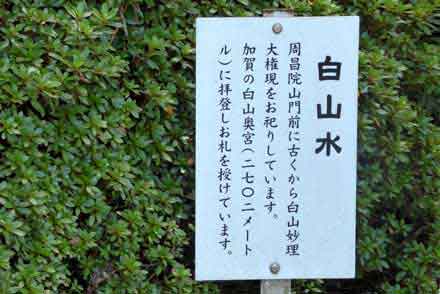 白山水
周昌院山門前に古くから白山妙理
大権現をお祀りしています。
加賀の白山奥宮(二七〇二メート
ル)に拝登しお札を授けています。